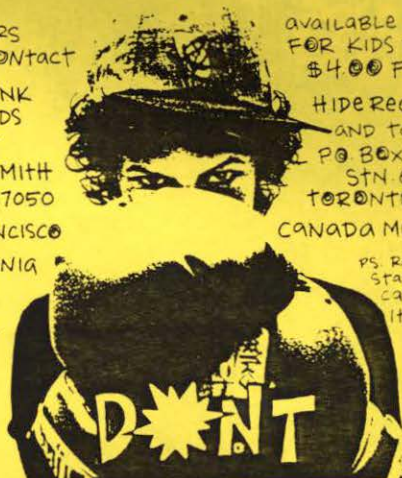 RS
ONtact
NK
DS
MITH
7050
NCISCO
NIA
availaBLe
FOR KIDS
$4.00 F
HIDE Rec
AND to
P.O. BOX
StN.
tORONt
CaNaDa M
PS. R
Sta
Ca
It
DON'T